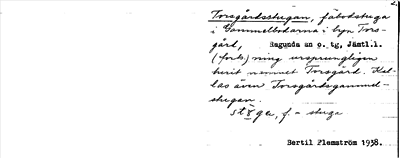 Torsgårdsstugan, fäbodstuga
i Gammelbodarna i byn Tors-
gård, Ragunda sn o. tg, Jämtl.l.
(forts) ning ursprungligen
burit namnet Torsgård. Kal-
las även Torsgårdsgammel-
stugan.
f. = stuga
Bertil Flemström 1938.